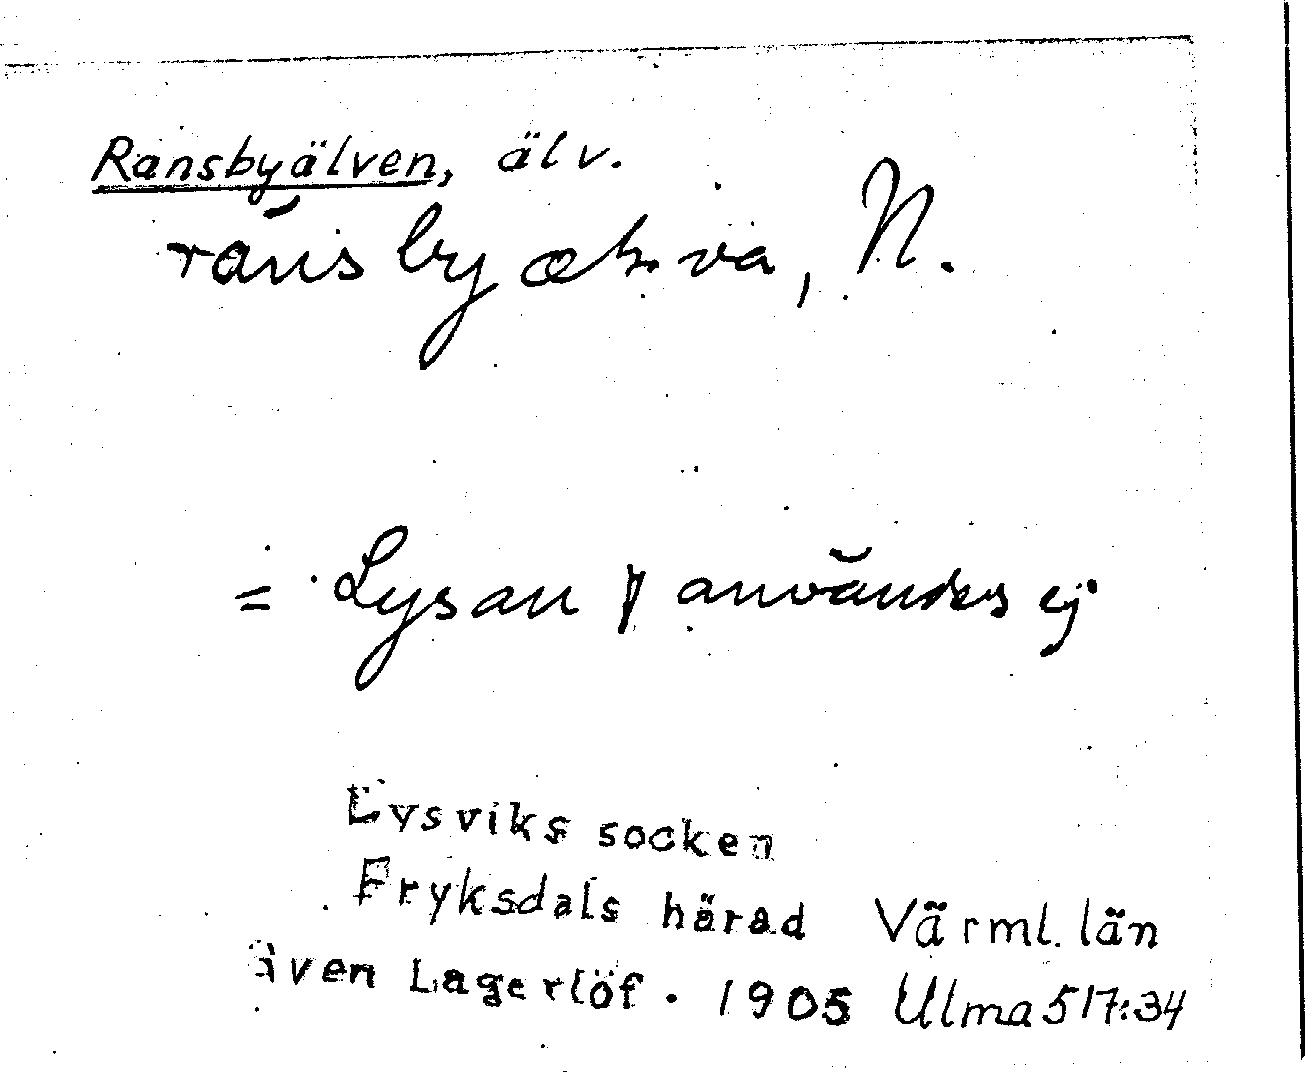 Ransbyälven, älv.
ránsbyælva, N.
= Lysan användes ej
Lysviks socken
Fryksdals härad Värml. län
Sven Lagerlöf. 1905 Ulma 517:34